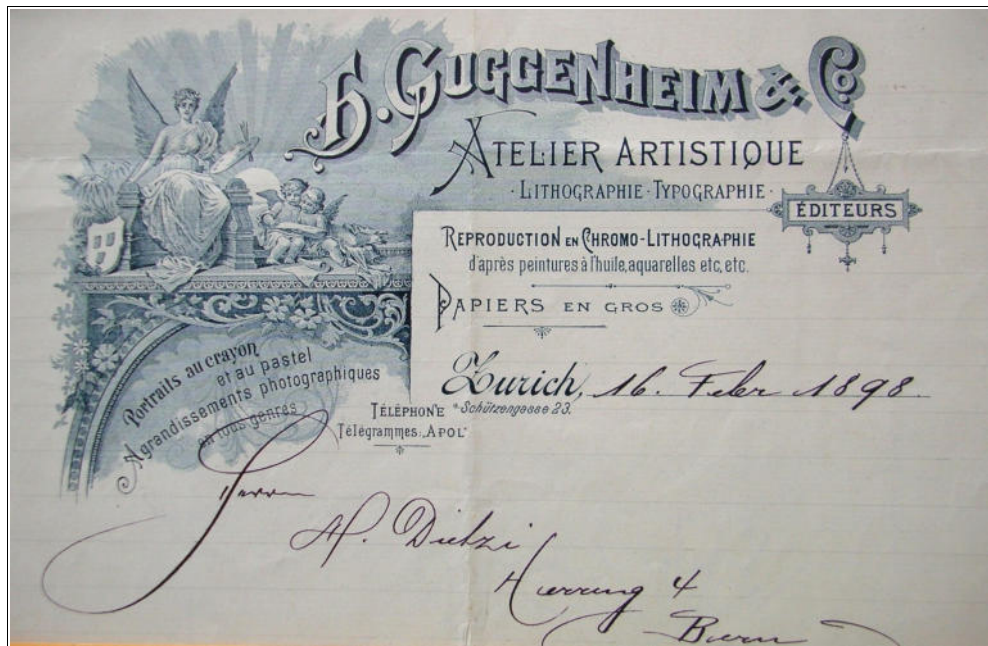 H. GUGGENHEIM & Co
ATELIER ARTISTIQUE
· LITHOGRAPHIE · TYPOGRAPHIE ·
ÉDITEURS
REPRODUCTION EN CHROMO-LITHOGRAPHIE
d'après peintures à l'huile, aquarelles etc, etc.
PAPIERS EN GROS
Portraits au crayon
et au pastel
Agrandissements photographiques
en tous genres
Zurich, 16. Febr 1898.
Schützengasse 23.
TÉLÉPHONE
Télégrammes: "APOL"
Herrn
Dietzi
4
Bern